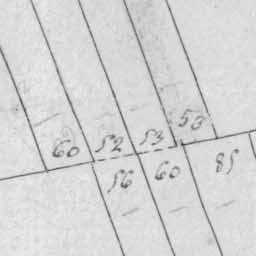 60 52 53 53
56 60 85